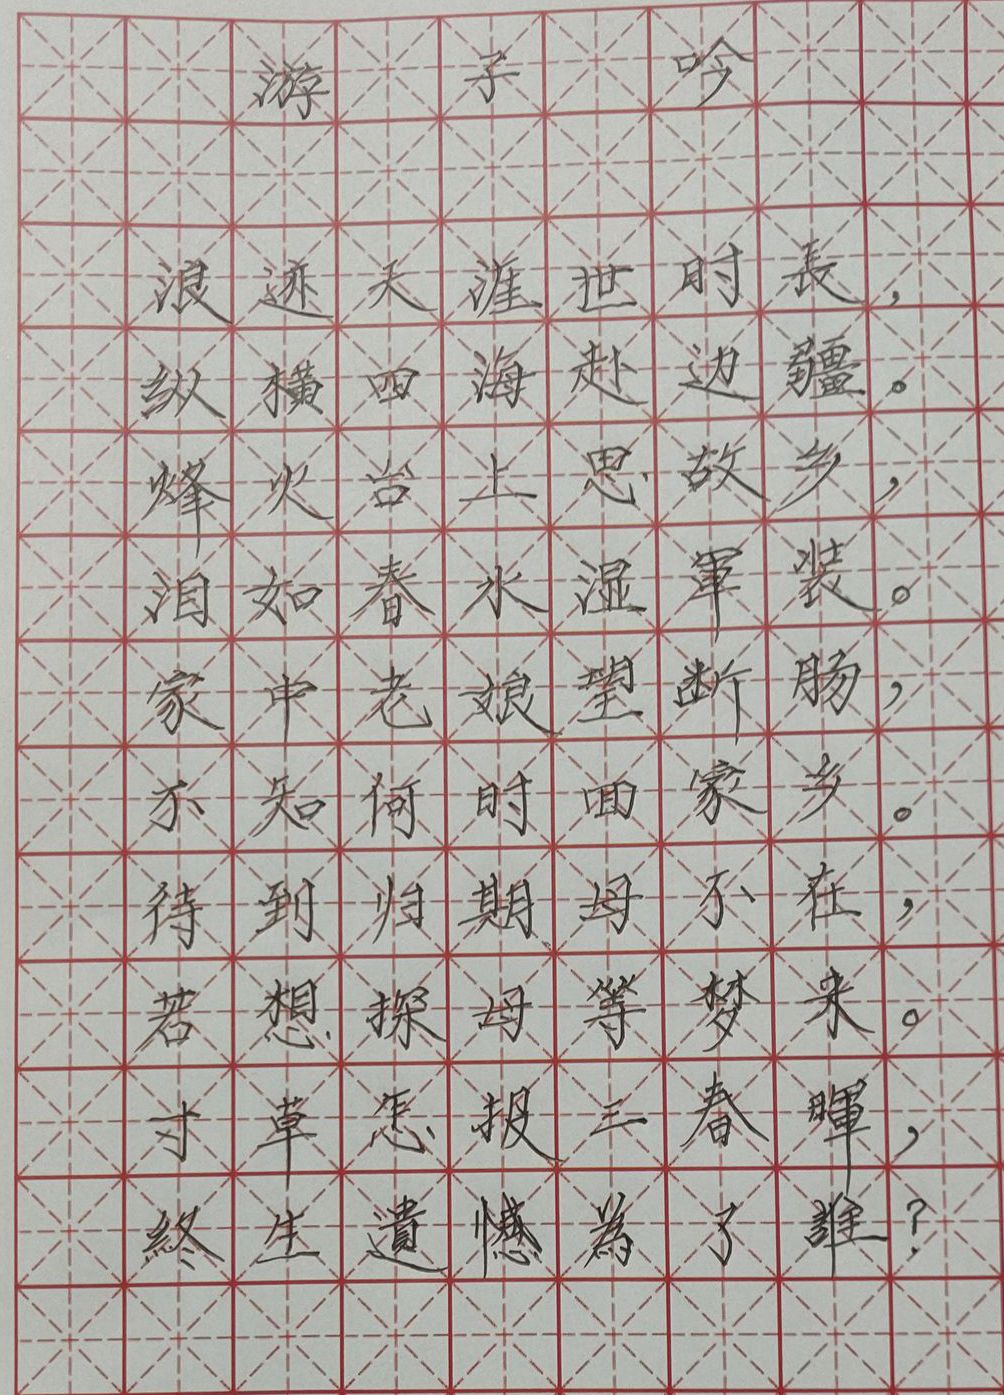 游子吟
浪迹天涯世时長，
纵横四海赴边疆。
烽火台上思故乡，
泪如春水湿軍装。
家中老娘望断肠，
不知何时回家乡。
待到归期母不在，
若想探母等梦来。
寸草怎报三春暉，
終生遺憾為了誰？